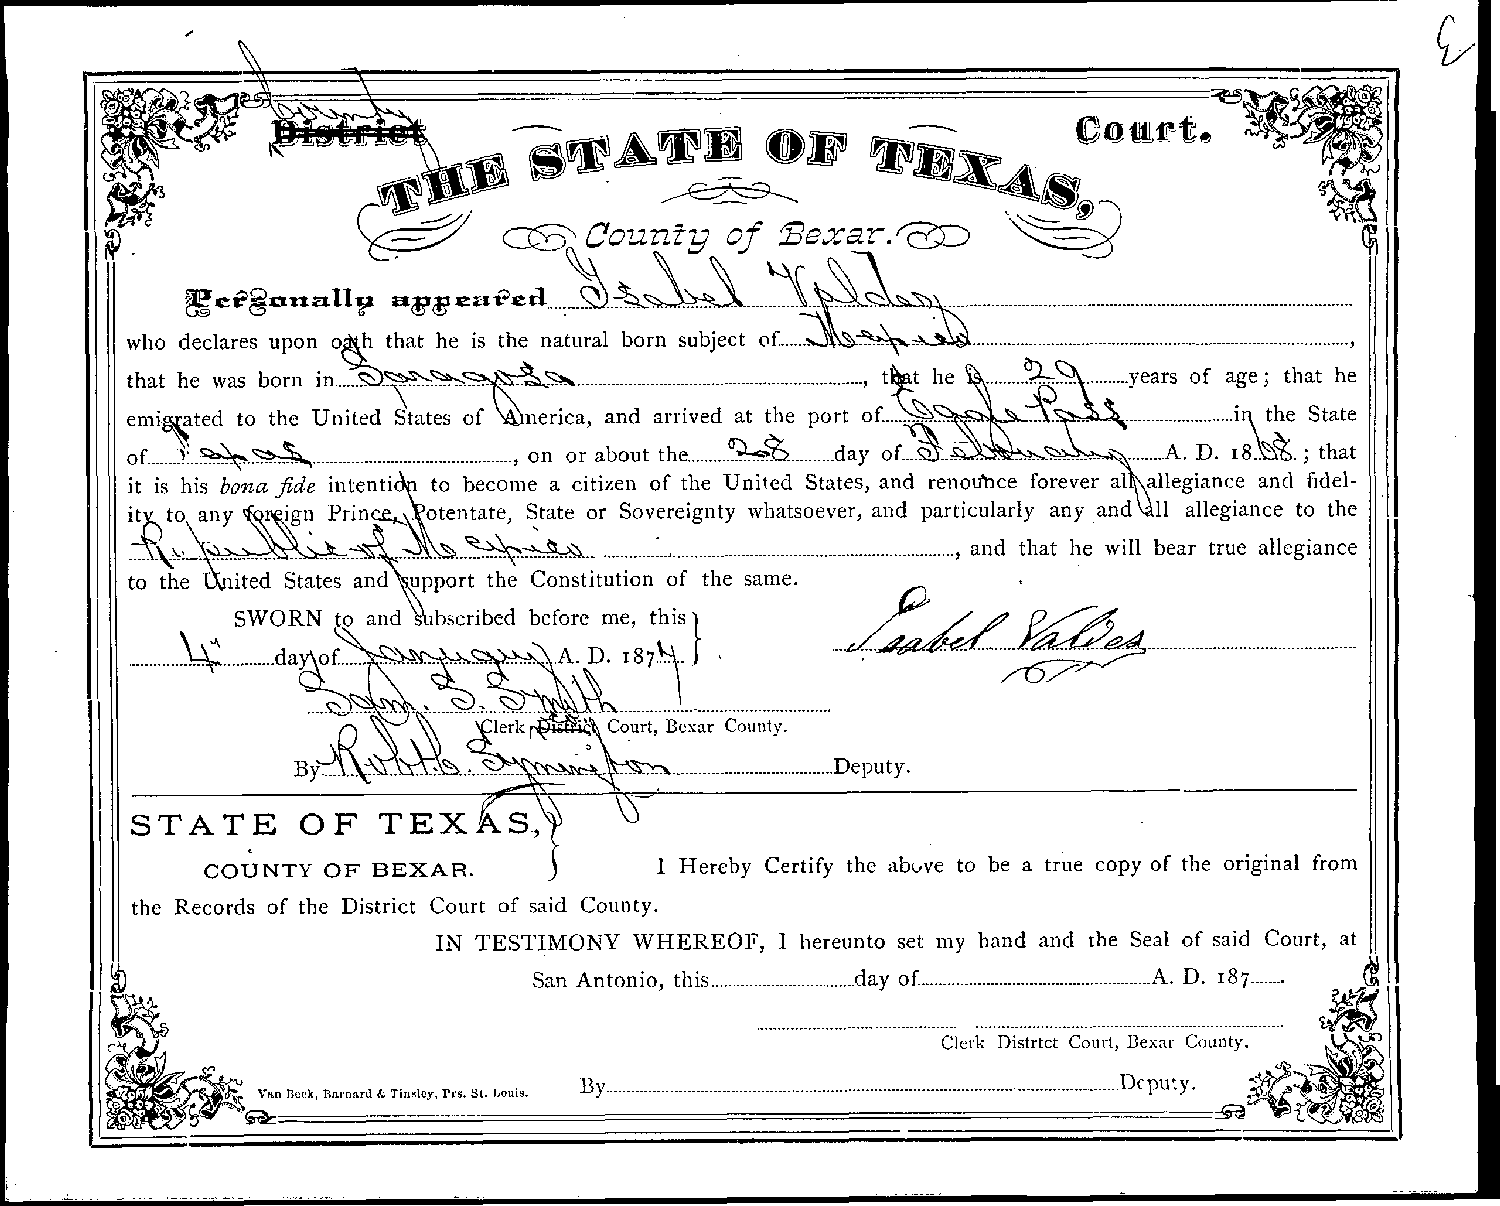 3
County
District Court.
THE STATE OF TEXAS,
County of Bexar.
Personally appeared Ysabel Valdez
who declares upon oath that he is the natural born subject of Mexico,
that he was born in Saragosa, that he is 29 years of age; that he
emigrated to the United States of America, and arrived at the port of Eagle Pass in the State
of Texas, on or about the 28 day of February A. D. 1868.; that
it is his bona fide intention to become a citizen of the United States, and renounce forever all allegiance and fidel-
ity to any foreign Prince, Potentate, State or Sovereignty whatsoever, and particularly any and all allegiance to the
Republic of Mexico, and that he will bear true allegiance
to the United States and support the Constitution of the same.
SWORN to and subscribed before me, this
4" day of January A. D. 1874.
Isabel Valdes
Sam. S. Smith
Clerk District Court, Bexar County.
By Robt. C. Symington Deputy.
STATE OF TEXAS,
COUNTY OF BEXAR. I Hereby Certify the above to be a true copy of the original from
the Records of the District Court of said County.
IN TESTIMONY WHEREOF, I hereunto set my hand and the Seal of said Court, at
San Antonio, this day of A. D. 187
Clerk Distrtct Court, Bexar County.
Van Beek, Barnard & Tinsley, Prs. St. Louis. By Deputy.